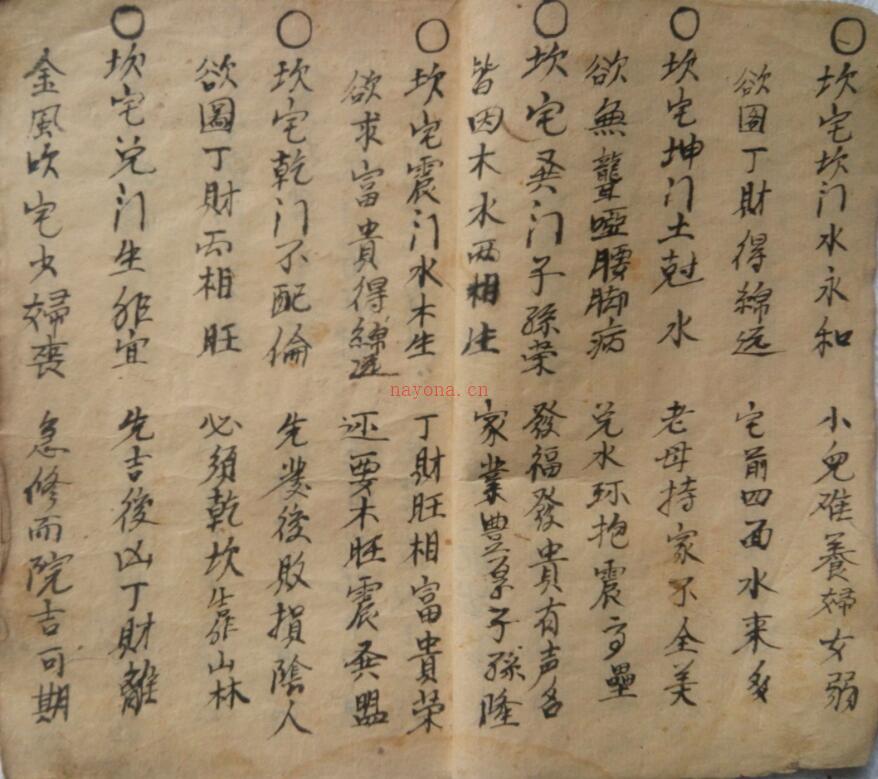 〇坎宅坎门水永和 小兒难養婦女弱
欲圖丁財得綿远 宅前四面水来多
〇坎宅坤门土尅水 老母持家不全美
欲無聾啞腰脚病 兑水环抱震高壘
〇坎宅巽门子孫荣 發福發貴有声名
皆因木水两相生 家業豊厚子孫隆
〇坎宅震门水木生 丁財旺相富貴荣
欲求富貴得綿远 还要木旺震巽盟
〇坎宅乾门不配倫 先發後敗損陰人
欲圖丁財两相旺 必須乾坎靠山林
〇坎宅兑门生非宜 先吉後凶丁財離
金風吹宅少婦喪 急修而院吉可期
nayona.cn